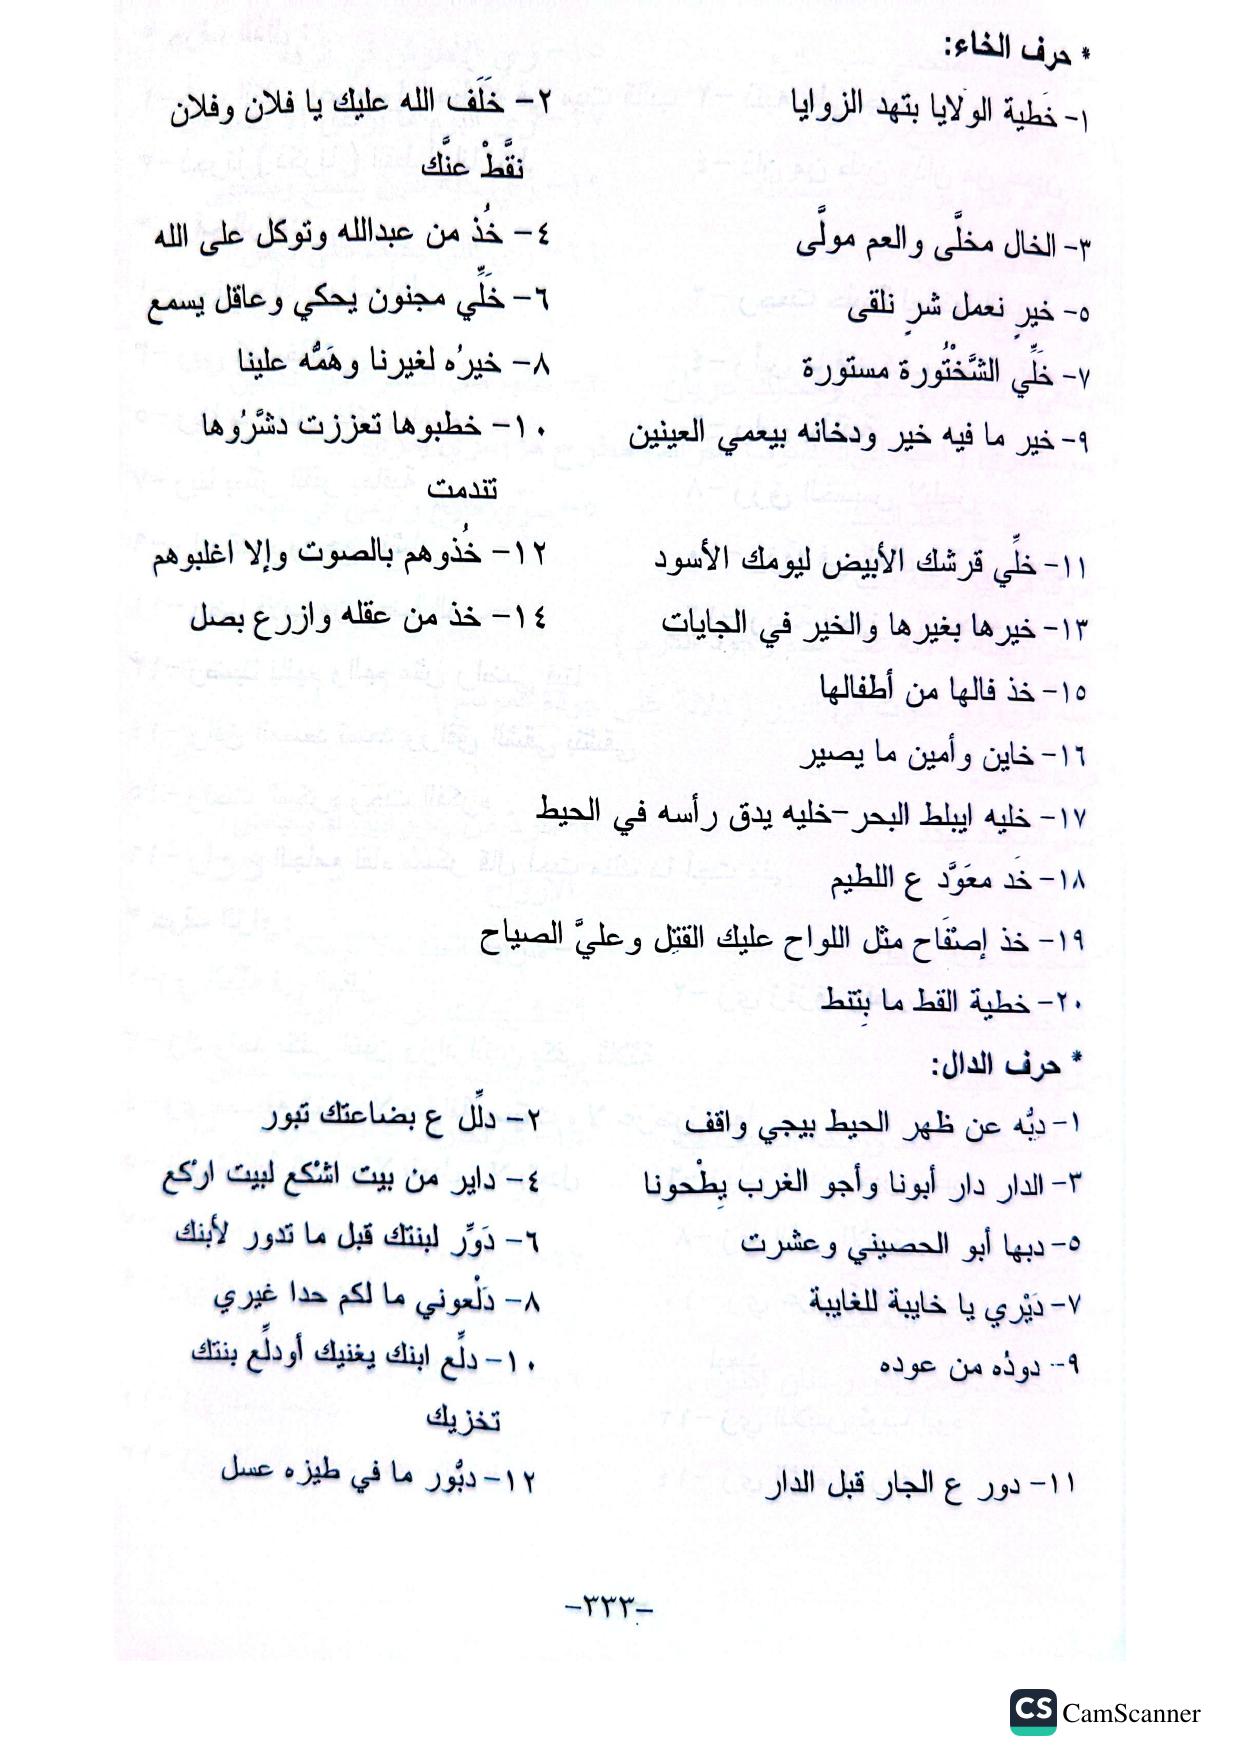 * حرف الخاء:
١- خَطية الولايا بتهد الزوايا
٢- خَلَف الله عليك يا فلان وفلان
نقَّطْ عنَّك
٣- الخال مخلَّى والعم مولَّى
٤- خُذ من عبدالله وتوكل على الله
٥- خيرٍ نعمل شرٍ نلقى
٦- خَلِّي مجنون يحكي وعاقل يسمع
٧- خَلِّي الشَّخْتُورة مستورة
٨- خيرُه لغيرنا وهَمُّه علينا
٩- خير ما فيه خير ودخانه بيعمي العينين
١٠- خطبوها تعززت دشَّرُوها
تندمت
١١- خلِّي قرشك الأبيض ليومك الأسود
١٢- خُذوهم بالصوت وإلا اغلبوهم
١٣- خيرها بغيرها والخير في الجايات
١٤- خذ من عقله وازرع بصل
١٥- خذ فالها من أطفالها
١٦- خاين وأمين ما يصير
١٧- خليه ايبلط البحر-خليه يدق رأسه في الحيط
١٨- خَد معَوَّد ع اللطيم
١٩- خذ إصتفَاح مثل اللواح عليك القتِل وعليَّ الصياح
٢٠- خطية القط ما بِتنط
* حرف الدال:
١- دبُّه عن ظهر الحيط بيجي واقف
٢- دلِّل ع بضاعتك تبور
٣- الدار دار أبونا وأجو الغرب يِطْحونا
٤- داير من بيت اشْكع لبيت ارْكع
٥- دبها أبو الحصيني وعشرت
٦- دَوِّر لبنتك قبل ما تدور لأبنك
٧- دَيْري يا خايبة للغايبة
٨- دَلْعوني ما لكم حدا غيري
٩- دودُه من عوده
١٠- دلِّع ابنك يغنيك أودلِّع بنتك
تخزيك
١١- دور ع الجار قبل الدار
١٢- دبُّور ما في طيزه عسل
-٣٣٣-
CS CamScanner